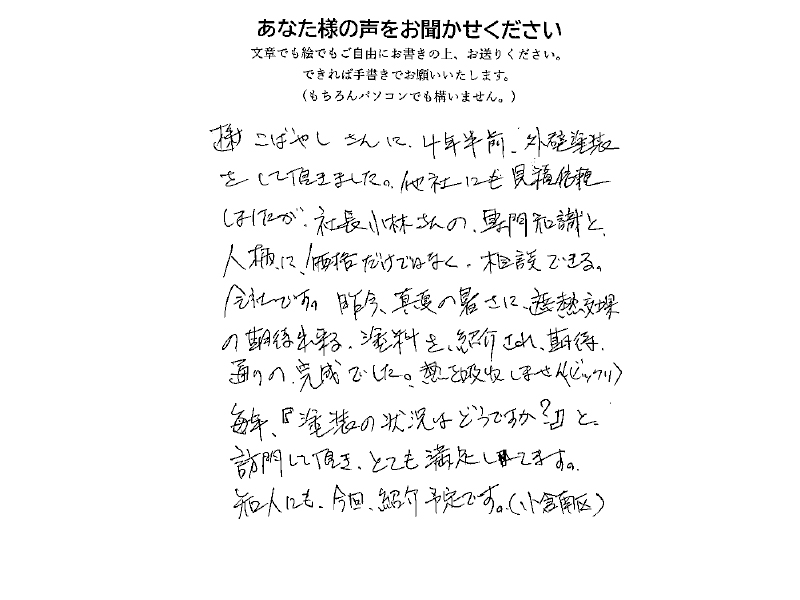 あなた様の声をお聞かせください
文章でも絵でもご自由にお書きの上、お送りください。
できれば手書きでお願いいたします。
（もちろんパソコンでも構いません。）
様 こばやし さんに、4年半前、外壁塗装
を して頂きました。他社にも見積依頼
しましたが、社長小林さんの、専門知識と、
人柄に、価格だけではなく、相談できる。
会社です。昨今、真夏の暑さに、遮熱効果
の期待出来る、塗料を、紹介され、期待、
通りの、完成でした。熱を吸収しません(ビックリ)
毎年、『塗装の状況はどうですか？』と、
訪問して頂き、とても満足してます。
知人にも、今回、紹介予定です。(小倉南区)